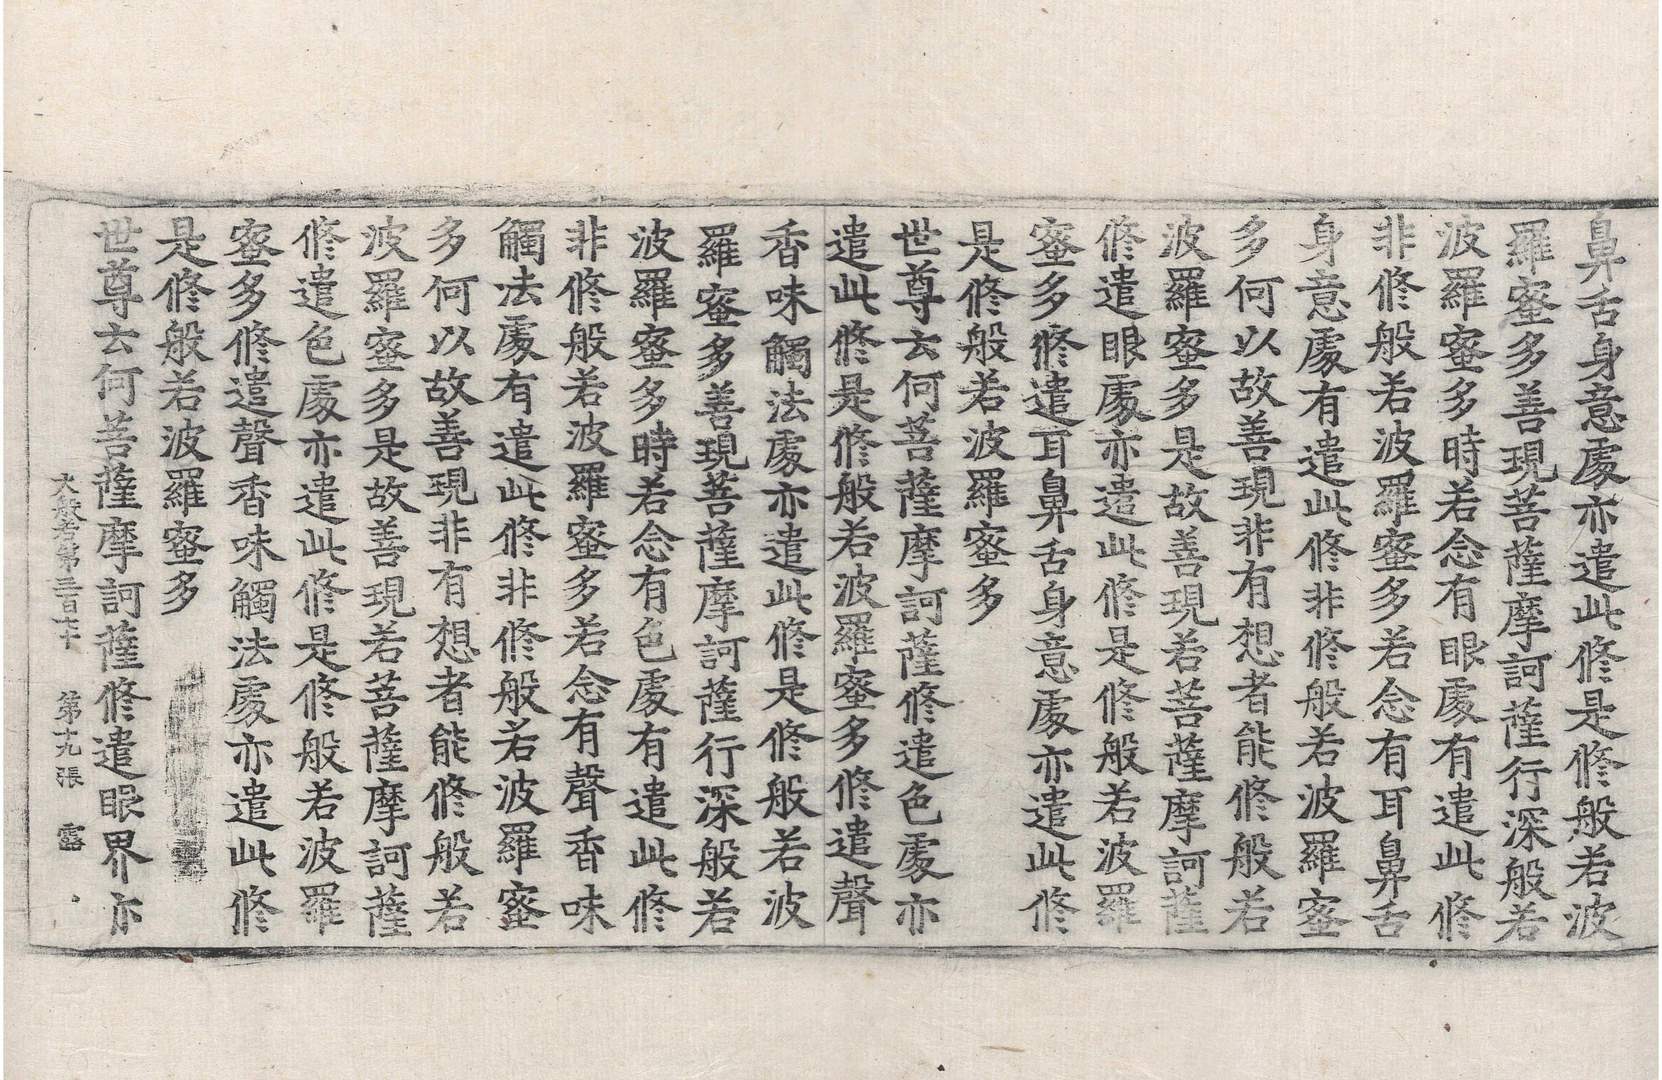 鼻舌身意處亦遣此修是修般若波
羅蜜多善現菩薩摩訶薩行深般若
波羅蜜多時若念有眼處有遣此修
非修般若波羅蜜多若念有耳鼻舌
身意處有遣此修非修般若波羅蜜
多何以故善現非有想者能修般若
波羅蜜多是故善現若菩薩摩訶薩
修遣眼處亦遣此修是修般若波羅
蜜多修遣耳鼻舌身意處亦遣此修
是修般若波羅蜜多
世尊云何菩薩摩訶薩修遣色處亦
遣此修是修般若波羅蜜多修遣聲
香味觸法處亦遣此修是修般若波
羅蜜多善現菩薩摩訶薩行深般若
波羅蜜多時若念有色處有遣此修
非修般若波羅蜜多若念有聲香味
觸法處有遣此修非修般若波羅蜜
多何以故善現非有想者能修般若
波羅蜜多是故善現若菩薩摩訶薩
修遣色處亦遣此修是修般若波羅
蜜多修遣聲香味觸法處亦遣此修
是修般若波羅蜜多
世尊云何菩薩摩訶薩修遣眼界亦
大般若第三百七十 第十九張 露